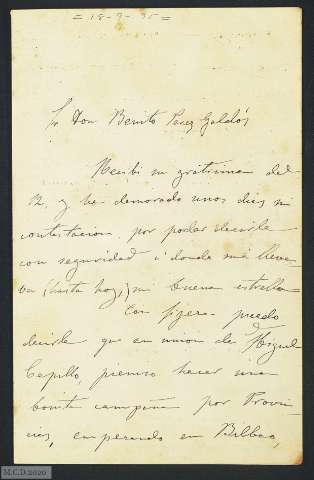 = 18-9-95 =
Sr Don Benito Perez Galdós
Recibi su gratisima del
12, y he demorado unos dias mi
contestacion, por poder decirle
con seguridad a donde me lleva-
ba (hasta hoy,) mi buena estrella
Con fijeza puedo
decirle que en union de Miguel
Cepillo, pienso hacer una
bonita campaña por Provin-
cias, empezando en Bilbao,
M.C.D 2020